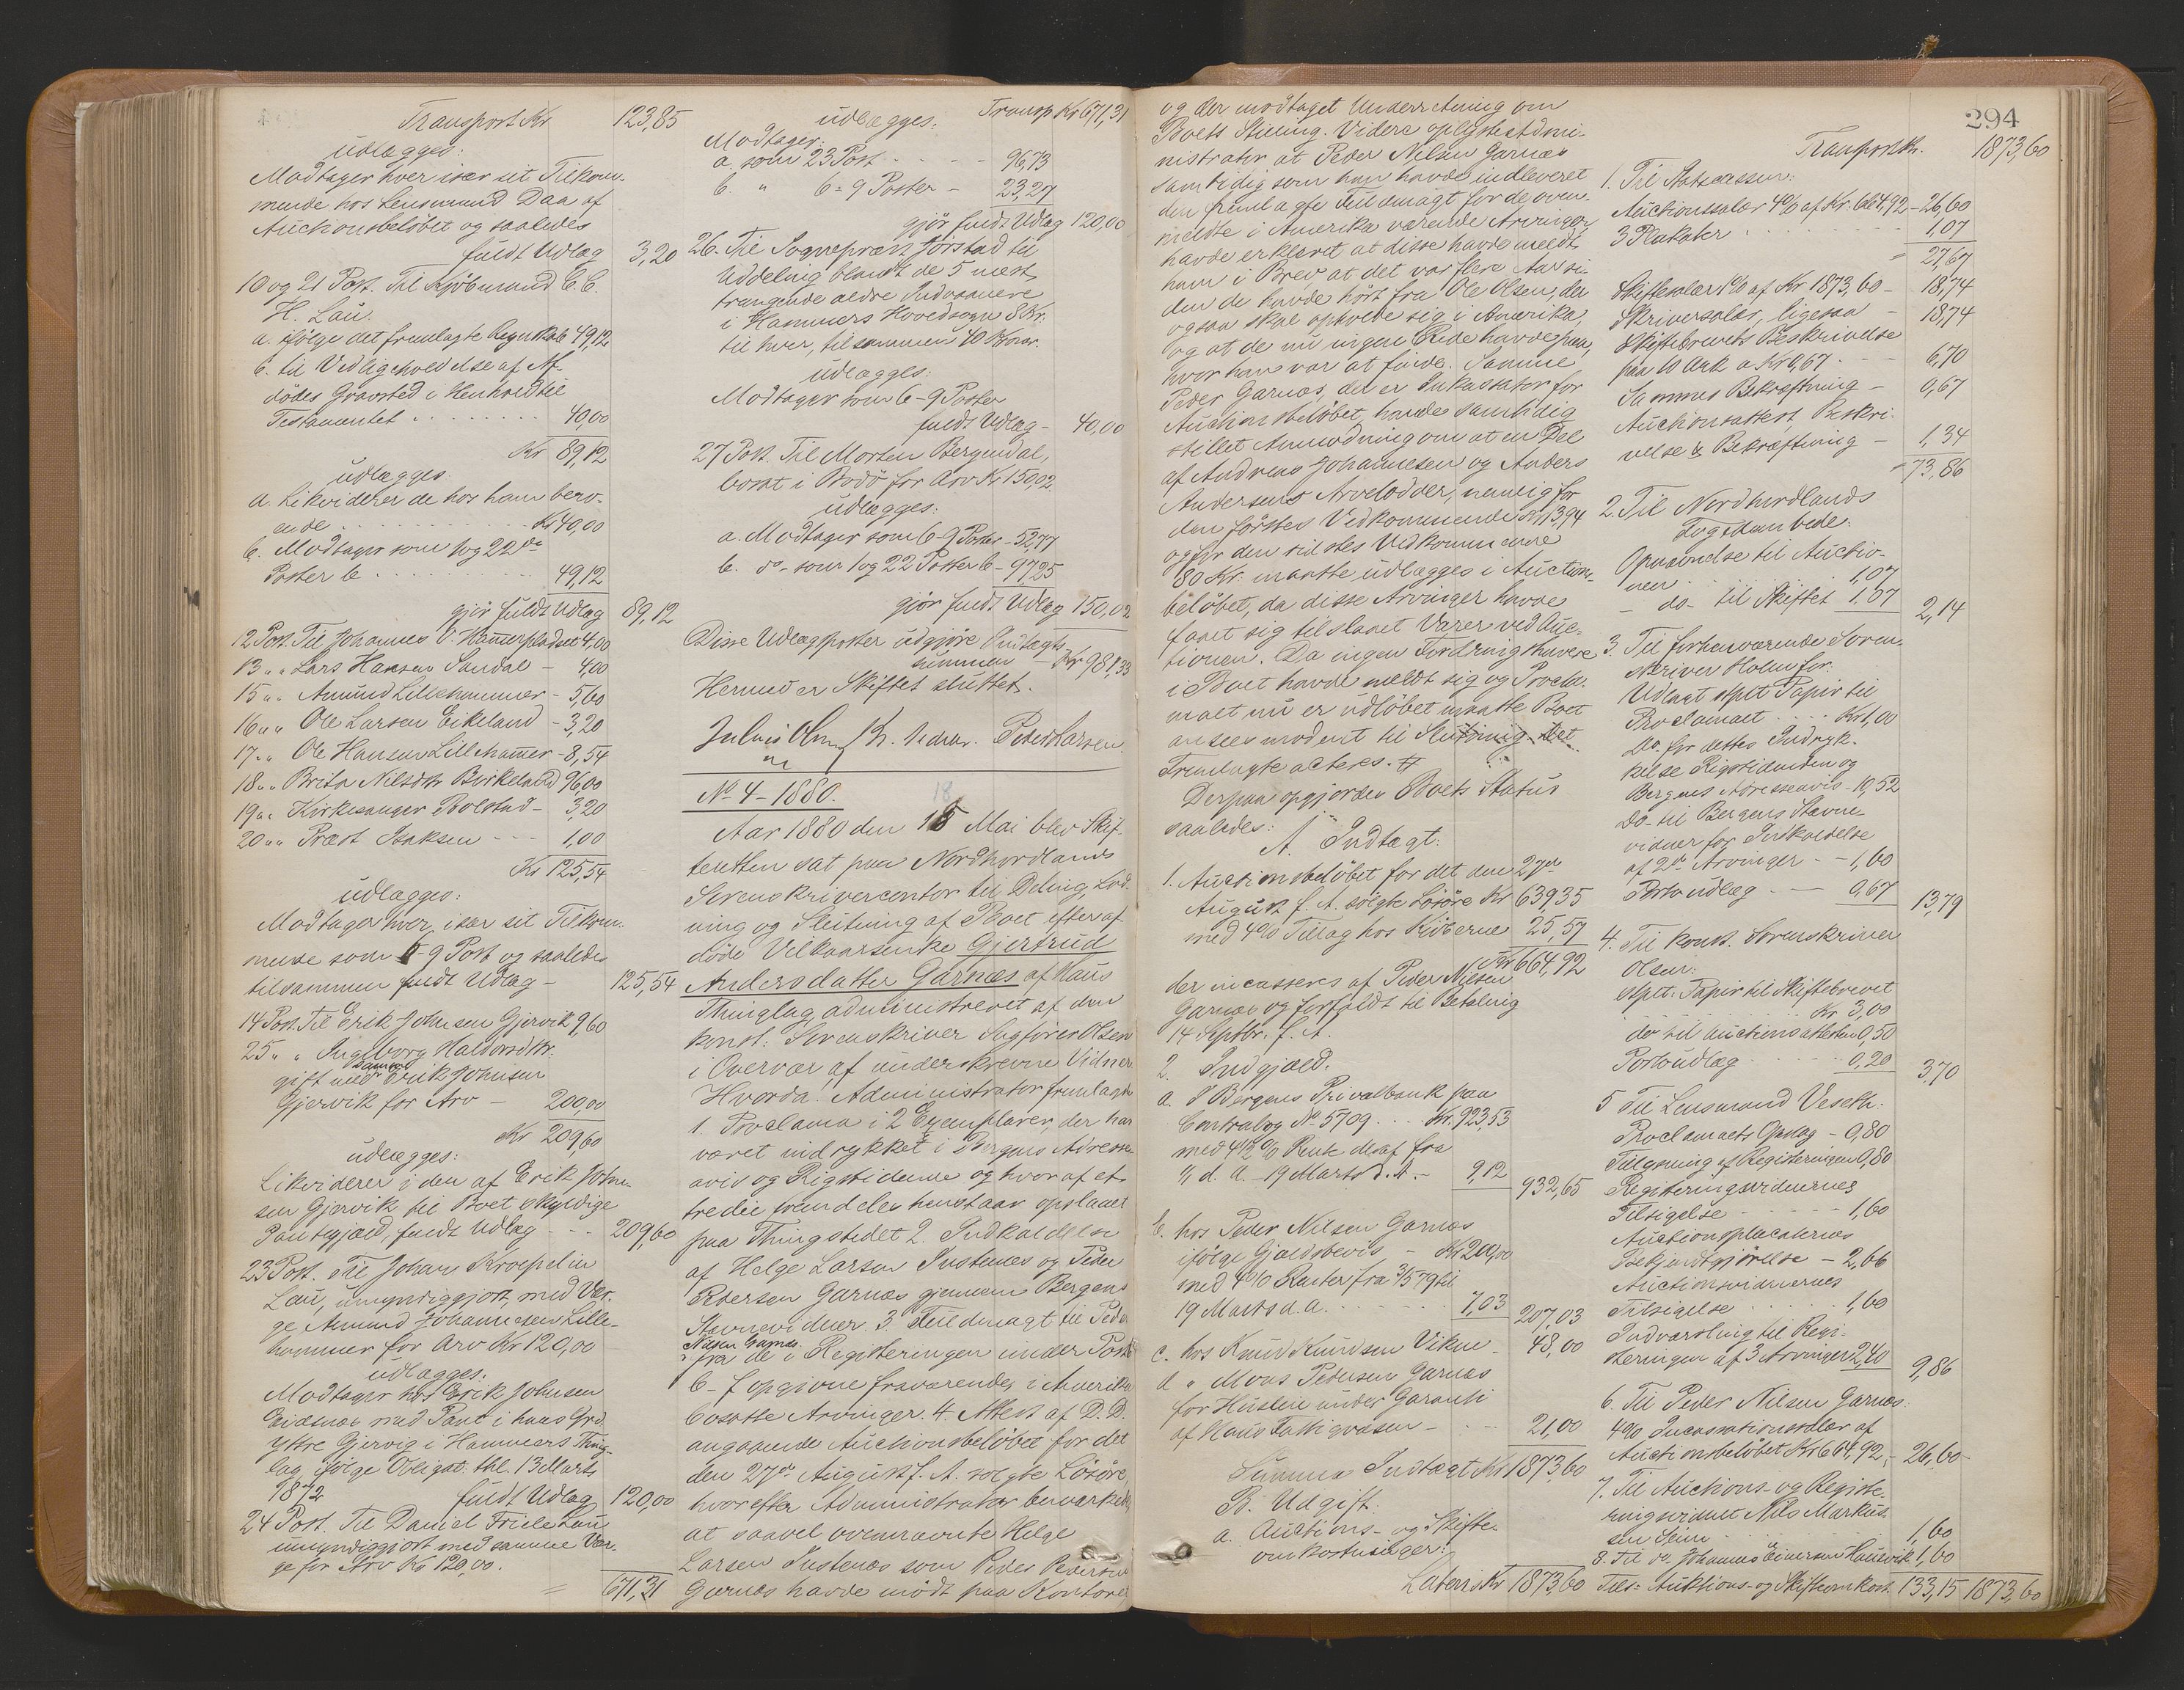 Transport Kr 123,85
udlægges:
Modtager hver især sit Tilkom-
mende hos Lensmand Daa af
Auctionsbeløbet og saaledes
fuldt Udlæg 3,20
10 og 21 Post. Til Kjøbmand C. C.
H. Lau.
a. ifølge det fremlagte Regnskab 49,12
b. til Vedligeholdelse af Af-
dødes Gravsted i Henhold til
Testamentet . . . 40,00
Kr 89,12
udlægges
a. Likviderer de hos ham bero-
ende . . . Kr 40,00
b. Modtager som 1 og 22de
Poster b . . . 49,12
gjør fuldt Udlæg 89,12
12 Post. Til Johannes O. Hammerpladset 4,00
13 " " Lars Hansen Sandal - 4,00
15 " " Amund Lillehammer - 5,60
16 " " Ole Larsen Eikeland - 3,20
17 " " Ole Hansen Lillehammer - 8,54
18 " " Brita Nilsdtr Birkeland 96,00
19 " " Kirkesanger Bolstad - 3,20
20 " " Præst Isaksen - - 1,00
Kr 125,54
udlægges:
Modtager hver især sit Tilkom-
mende som 6-9 Post og saaledes
tilsammen fuldt Udlæg - 125,54
14 Post. Til Erik Johnsen Gjervik 9,60
25 " " Ingeborg Haldorsdtr.
gift med Samme Erik Johnsen
Gjervik for Arv - 200,00
Kr 209,60
udlægges:
Likviderer i den af Erik John-
sen Gjervik til Boet skyldige
Pantegjæld, fuldt Udlæg - - 209,60
23 Post. Til Johan Kroepelin
Lau, umyndiggjort, med Vær-
ge Amund Johannesen Lille-
hammer for Arv Kr 120,00
udlægges:
Modtager hos Erik Johnsen
Eidsnes med Pant i hans Grd.
Ytre Gjervig i Hammers Thing-
lag ifølge Obligat. thl. 13 Marts
1872 fuldt Udlæg 120,00
24 Post. Til Daniel Friele Lau
umyndiggjort med samme Vær-
ge for Arv Kr 120,00.
671,31
Transp Kr 671,31
udlægges:
Modtager:
a. som 23 Post - - - 96,73
b. " 6-9 Poster - 23,27
gjør fuldt Udlæg 120,00
26. Til Sognepræst Jørstad til
Uddeling blandt de 5 mest
trængende ældre Indvaanere
i Hammers Hovedsogn 8 Kr.
til hver, tilsammen 40 Kroner.
udlægges:
Modtager som 6-9 Poster
fuldt Udlæg - 40,00
27 Post. Til Morten Bergendal,
bosat i Bodø for Arv Kr 150,02
udlægges:
a. Modtager som 6-9 Poster - 52,77
b. do. som 1 og 22 Poster b - 97,25
gjør fuldt Udlæg 150,02
Disse Udlægsposter udgjøre Indtægts-
summen - Kr 981,33
Hermed er Skiftet sluttet.
Julius Olsen Peder Larsen
No 4 - 1880.
18
Aar 1880 den 15 Mai blev Skif-
teretten sat paa Nordhordlands
Sorenskrivercontor til Deling, Lod-
ning og Slutning af Boet efter af-
døde Vilkaarsenke Gjertrud
Andersdatter Garnæs af Haus
Thinglag administreret af den
konst. Sorenskriver Sagfører Olsen
i Overvær af underskrevne Vidner.
Hvorda Administrator fremlagde
1. Proclama i 2 Exemplarer, der har
været indrykket i Bergens Adresse-
avis og Rigstidende og hvoraf et
tredie fremdeles henstaar opslaaet
paa Thingstedet 2. Indkaldelse
af Helge Larsen Tustenæs og Peder
Pedersen Garnæs gjennem Bergens
Stevnevidner. 3. Fuldmagt til Peder
Nilsen Garnæs
fra de i Registeringen under Post
b-f opgivne fraværende, i Amerika
bosatte Arvinger. 4. Attest af D. D.
angaaende Auctionsbeløbet for det
den 27de August f. A. solgte Løsøre,
hvorefter Administrator bemærkede
at saavel ovennævnte Helge
Larsen Tustenæs som Peder Pedersen
Garnæs havde mødt paa Kontoret
og der modtaget Underretning om
Boets Stilling. Videre oplyste Admi-
nistrator at Peder Nilsen Garnæs
samtidig som han havde indleveret
den fremlagte Fuldmagt for de oven-
meldte i Amerika værende Arvinger,
havde erklæret at disse havde meldt
ham i Brev, at det var flere Aar si-
den de havde hørt fra Ole Olsen, der
ogsaa skal opholde sig i Amerika
og at de nu ingen Rede havde paa,
hvor han var at finde. Samme
Peder Garnæs, der er Inkassator for
Auctionsbeløbet, havde samtidig
stillet Anmodning om at en Del
af Andreas Johannesen og Anders
Andersens Arvelodder, nemlig for
den førstes Vedkommende Kr 13,94
og for den sidstes Vedkommende
80 Kr. maatte udlægges i Auctions-
beløbet, da disse Arvinger havde
faaet sig tilslaaet Varer ved Auc-
tionen. Da ingen Fordringshavere
i Boet havde meldt sig og Procla-
maet nu er udløbet maatte Boet
ansees modent til Slutning. Det
Fremlagte acteres. #
Derpaa opgjordes Boets Status
saaledes:
A. Indtægt.
1. Auctionsbeløbet for det den 27de
August f. A. solgte Løsøre Kr 639,35
med 4% Tillæg hos Kjøberne 25,57
Kr 664,92
der incasseres af Peder Nilsen
Garnæs og forfaldt til Betaling
14 Septbr. f. A.
2. Indgjæld.
a. I Bergens Privatbank paa
Contrabog No 5709 . . . Kr. 923,53
med 4 1/2 % Rente deraf fra
1/1 d. A. - 19 Marts d. A. - 9,12 932,65
b. hos Peder Nilsen Garnæs
ifølge Gjældsbevis - Kr 200,00
med 4% Renter fra 3/5 79 til
19 Marts d. A. . . . 7,03 207,03
c. hos Knud Knudsen Vikne - 48,00
d " Mons Pedersen Garnæs
for Huslei under Garanti
af Haus Fattigvæsen - - - 21,00
Summa Indtægt Kr 1873,60
B. Udgift.
a. Auctions- og Skifte-
omkostninger:
Lateris Kr 1873,60
294
Transport Kr. 1873,60
1. Til Statscassen:
Auctionssalær 4% af Kr. 664,92 - 26,60
3 Plakater . . . 1,07
= 27,67
Skiftesalær 1% af Kr 1873,60 - 18,74
Skriversalær, ligesaa - 18,74
Skiftebrevets Beskrivelse
paa 10 Ark a Kr 0,67 - 6,70
Sammes Bekræftning - 0,67
Auctionsattest, Beskri-
velse & Bekræftning - 1,34
73,86
2. Til Nordhordlands
Fogedembede:
Opnævnelse til Auctio-
nen . . . 1,07
- do - til Skiftet 1,07 2,14
3. Til forhenværende Soren-
skriver Holm for:
Udlagt stplt Papir til
Proclamaet . . . Kr 1,00
Do. for dettes Indryk-
kelse Rigstidenden og
Bergens Adresseavis - 10,52
Do- til Bergens Stevne-
vidner for Indkaldelse
af 2de Arvinger - - 1,60
Portoudlæg . . - 0,67 13,79
4. Til konst. Sorenskriver
Olsen:
stplt. Papir til Skiftebrevet
Kr 3,00
do til Auctionsattesten 0,50
Portoudlæg . . . 0,20 3,70
5 Til Lensmand Veseth:
Proclamaets Opslag - 0,80
Tillysning af Registeringen 0,80
Registeringsvidnernes
Tilsigelse . . . 1,60
Auctionsplacaternes
Bekjendtgjørelse - 2,66
Auctionsvidnernes
Tilsigelse . . . 1,60
Indvarsling til Regi-
steringen af 3 Arvinger 2,40 9,86
6. Til Peder Nilsen Garnæs:
4% Incassationssalær af
Auctionsbeløbet Kr 664,92 - 26,60
7. Til Auctions- og Registe-
ringsvidnet Nils Markus-
sen Seim . . . 1,60
8. Til do Johannes Einersen Hausvik 1,60
Tils: Auktions- og Skifteomkost. 133,15 1873,60